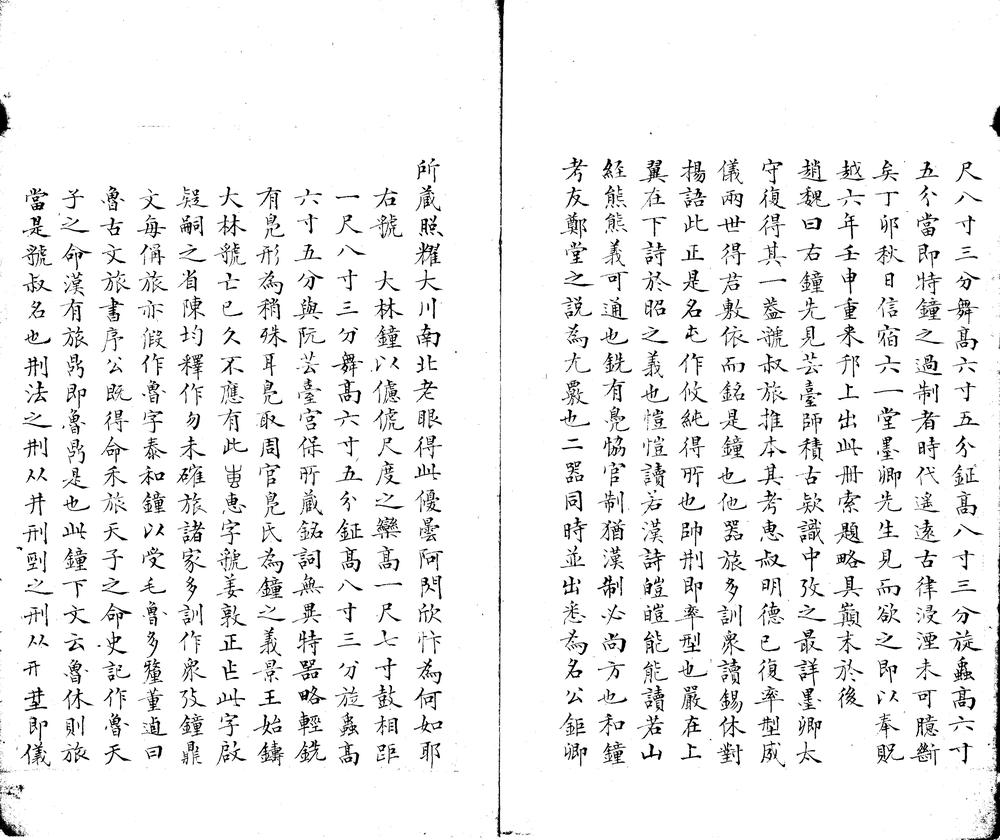 尺八寸三分舞高六寸五分鉦高八寸三分旋蟲高六寸
五分當即特鐘之過制者時代遙遠古律浸湮未可臆斷
矣丁卯秋日信宿六一堂墨卿先生見而欲之即以奉貺
越六年壬申重来邗上出此册索題略具巔末於後
趙魏曰右鐘先見芸臺師積古欵識中攷之最詳墨卿太
守復得其一葢虢叔旅推本其考惠叔明德已復率型威
儀兩世得君敷依而銘是鐘也他器旅多訓衆讀錫休對
揚語此正是名屯作攸純得所也帥刑即率型也嚴在上
翼在下詩於昭之義也愷愷讀若漢詩皚皚能能讀若山
經熊熊義可通也銑有鳧恊官制猶漢制必尚方也和鐘
考友鄭堂之説為尤覈也二器同時並出悉為名公鉅卿
所藏照耀大川南北老眼得此優曇阿閦欣忭為何如耶
右虢　大林鐘以儢俿尺度之欒高一尺七寸鼓相距
一尺八寸三分舞高六寸五分鉦高八寸三分旋蟲高
六寸五分與阮芸臺宮保所藏銘詞無異特器略輕銑
有鳧形為稍殊耳鳧取周官鳧氏為鐘之義景王始鑄
大林虢亡已久不應有此叀惠字虢姜敦正作此字啟
疑嗣之省陳均釋作勿未確旅諸家多訓作衆攷鐘鼎
文每偁旅亦假作魯字泰和鐘以受毛魯多釐董逌曰
魯古文旅書序公既得命禾旅天子之命史記作魯天
子之命漢有旅鼎即魯鼎是也此鐘下文云魯休則旅
當是虢叔名也刑法之刑从井刑剄之刑从幵型即儀